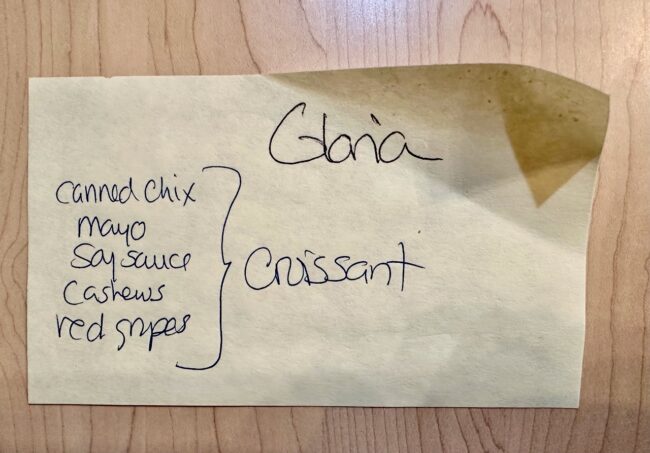 Gloria
canned chix
mayo
Soy sauce
Cashews
red grapes
Croissant